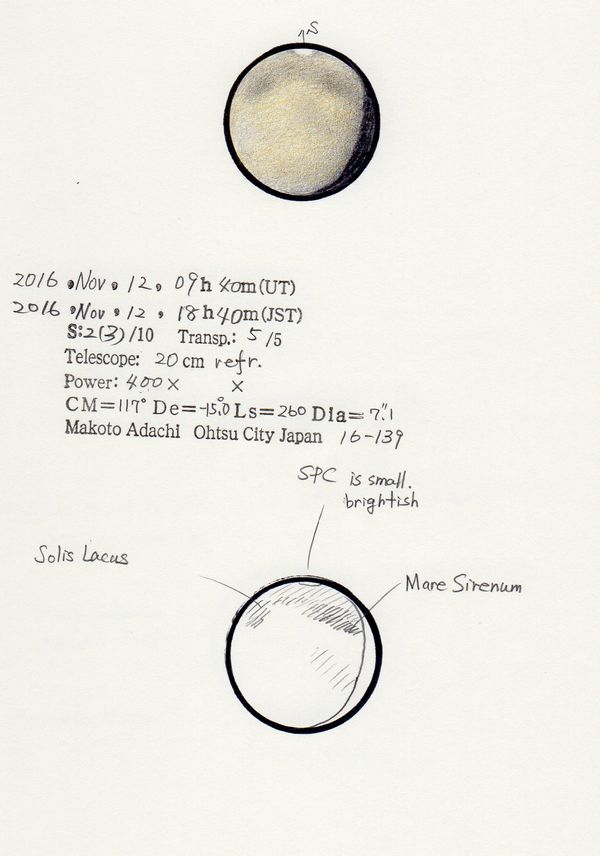 S
2016 . Nov . 12 , 09h 40m(UT)
2016 . Nov . 12 , 18h40m(JST)
S:2(3)/10 Transp.: 5 /5
Telescope: 20 cm refr.
Power: 400× ×
CM=117° De=-15.0° Ls=260 Dia=7".1
Makoto Adachi Ohtsu City Japan 16-139
SPC is small.
brightish
Solis Lacus
Mare Sirenum